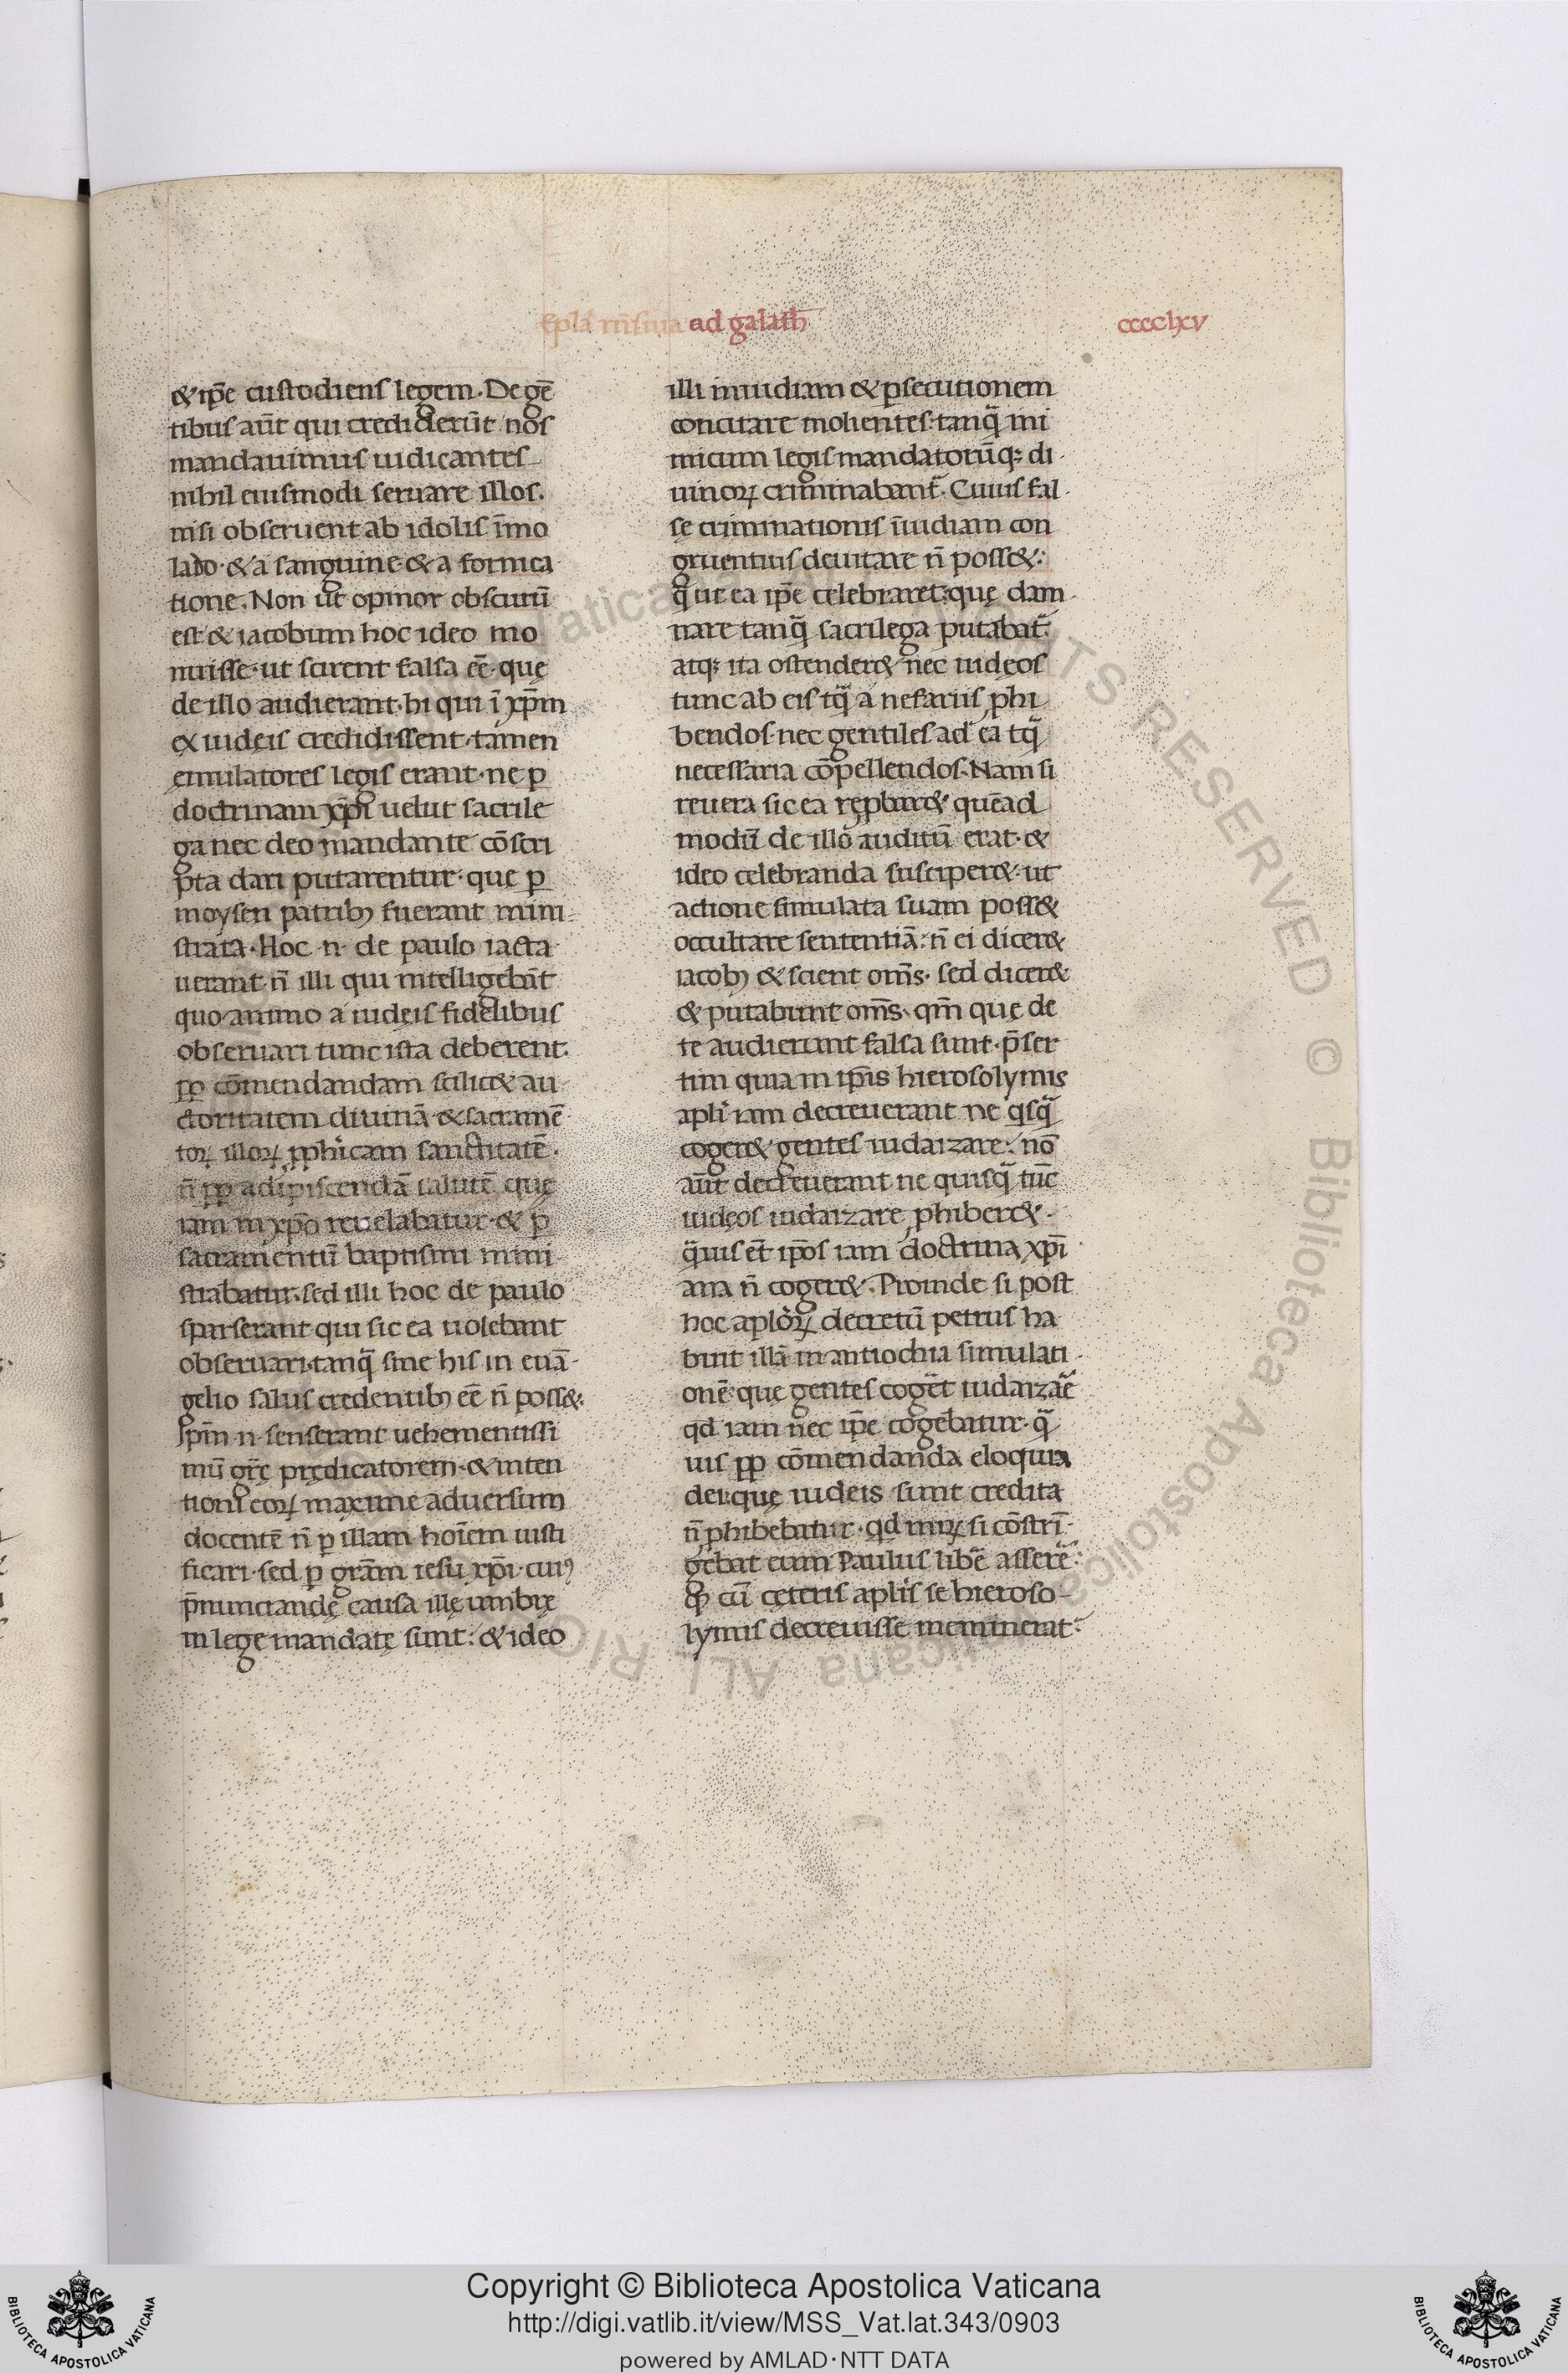 epła m̄siua ad galath̄
cccclxv
& ip̄e custodiens legem. De gē
tibus aūt qui crediderūt nos
mandauimus iudicantes
nihil eiusmodi seruare illos.
nisi obseruent ab idolis īmo
lato. & a sanguine & a fornica
tione. Non ut opinor obscurū
est & iacobum hoc ideo mo
nuisse. ut scirent falsa eē. quę
de illo audierant. hi qui ī xp̄m
ex iudęis credidissent. tamen
ęmulatores legis erant. ne ꝑ
doctrinam xp̄i uelut sacrile
ga nec deo mandante cōscri
pta dari putarentur. que ꝑ
moysen patribꝫ fuerant mini
strata. Hoc .n. de paulo iacta
uerant. n̄ illi qui intelligebāt
quo animo a iudęis fidelibus
obseruari tunc ista deberent.
ꝓp cōmendandam scilic& au
ctoritatem diuinā & sacramē
toꝝ illoꝝ ꝓphicam sanctitatē.
n̄ ꝓp adipiscendā salutē quę
iam in xp̄o reuelabatur. & ꝑ
sacramentū baptismi mini
strabatur. sed illi hoc de paulo
sparserant qui sic ea uolebant
obseruari. tanq̄ sine his in euā
gelio salus credentibꝫ eē n̄ poss&.
Ip̄m .n. senserant uehementissi
mū gr̄ę prędicatorem. & inten
tioni eoꝝ maxime aduersum
docentē n̄ ꝑ illam hoīem iusti
ficari. sed ꝑ grām iesu xp̄i. cuiꝰ
p̄nunciandę causa illę umbrę
in lege mandatę sunt. & ideo
illi inuidiam & ꝑsecutionem
concitare molientes. tanq̄ ini
micum legis mandatorūqꝫ di
uinoꝝ criminabant̄. Cuius fal
sę criminationis īuidiam con
gruentius deuitare n̄ poss&.
q̄ ut ea ip̄e celebraret. quę dam
nare tanq̄ sacrilega putabat̄.
atqꝫ ita ostender& nec iudęos
tunc ab eis tq̄ a nefariis ꝓhi
bendos. nec gentiles ad ea tq̄
necessaria cōpellendos. Nam si
reuera sic ea reꝓbar& quēad
modū de illo auditū erat. &
ideo celebranda susciper&. ut
actione simulata suam poss&
occultare sententiā. n̄ ei dicer&
iacobꝫ & scient om̄s. sed dicer&
& putabunt om̄s. qm̄ quę de
te audierunt falsa sunt. p̄ser
tim quia in ip̄is hierosolymis
apli iam decreuerant ne qsq̄
coger& gentes iudaizare. nō
aūt decreuerant ne quisq̄ tūc
iudęos iudaizare ꝓhiber&.
q̄uis et̄ ip̄os iam doctrina xp̄i
ana n̄ coger&. Proinde si post
hoc aploꝝ decretū petrus ha
buit illā in antiochia simulati
onē. que gentes coger̄t iudaizar̄e
qd iam nec ip̄e cogebatur. q̄
uis ꝓp cōmendanda eloquia
dei. quę iudeis sunt credita
n̄ ꝓhibebatur. qd miꝝ si cōstrī
gebat eum Paulus libē asserē.
qꝫ cū cęteris aplis se hieroso
lymis decreuisse meminerat.
Copyright © Biblioteca Apostolica Vaticana
http://digi.vatlib.it/view/MSS_Vat.lat.343/0903
powered by AMLAD · NTT DATA
BIBLIOTECA APOSTOLICA VATICANA
BIBLIOTECA APOSTOLICA VATICANA